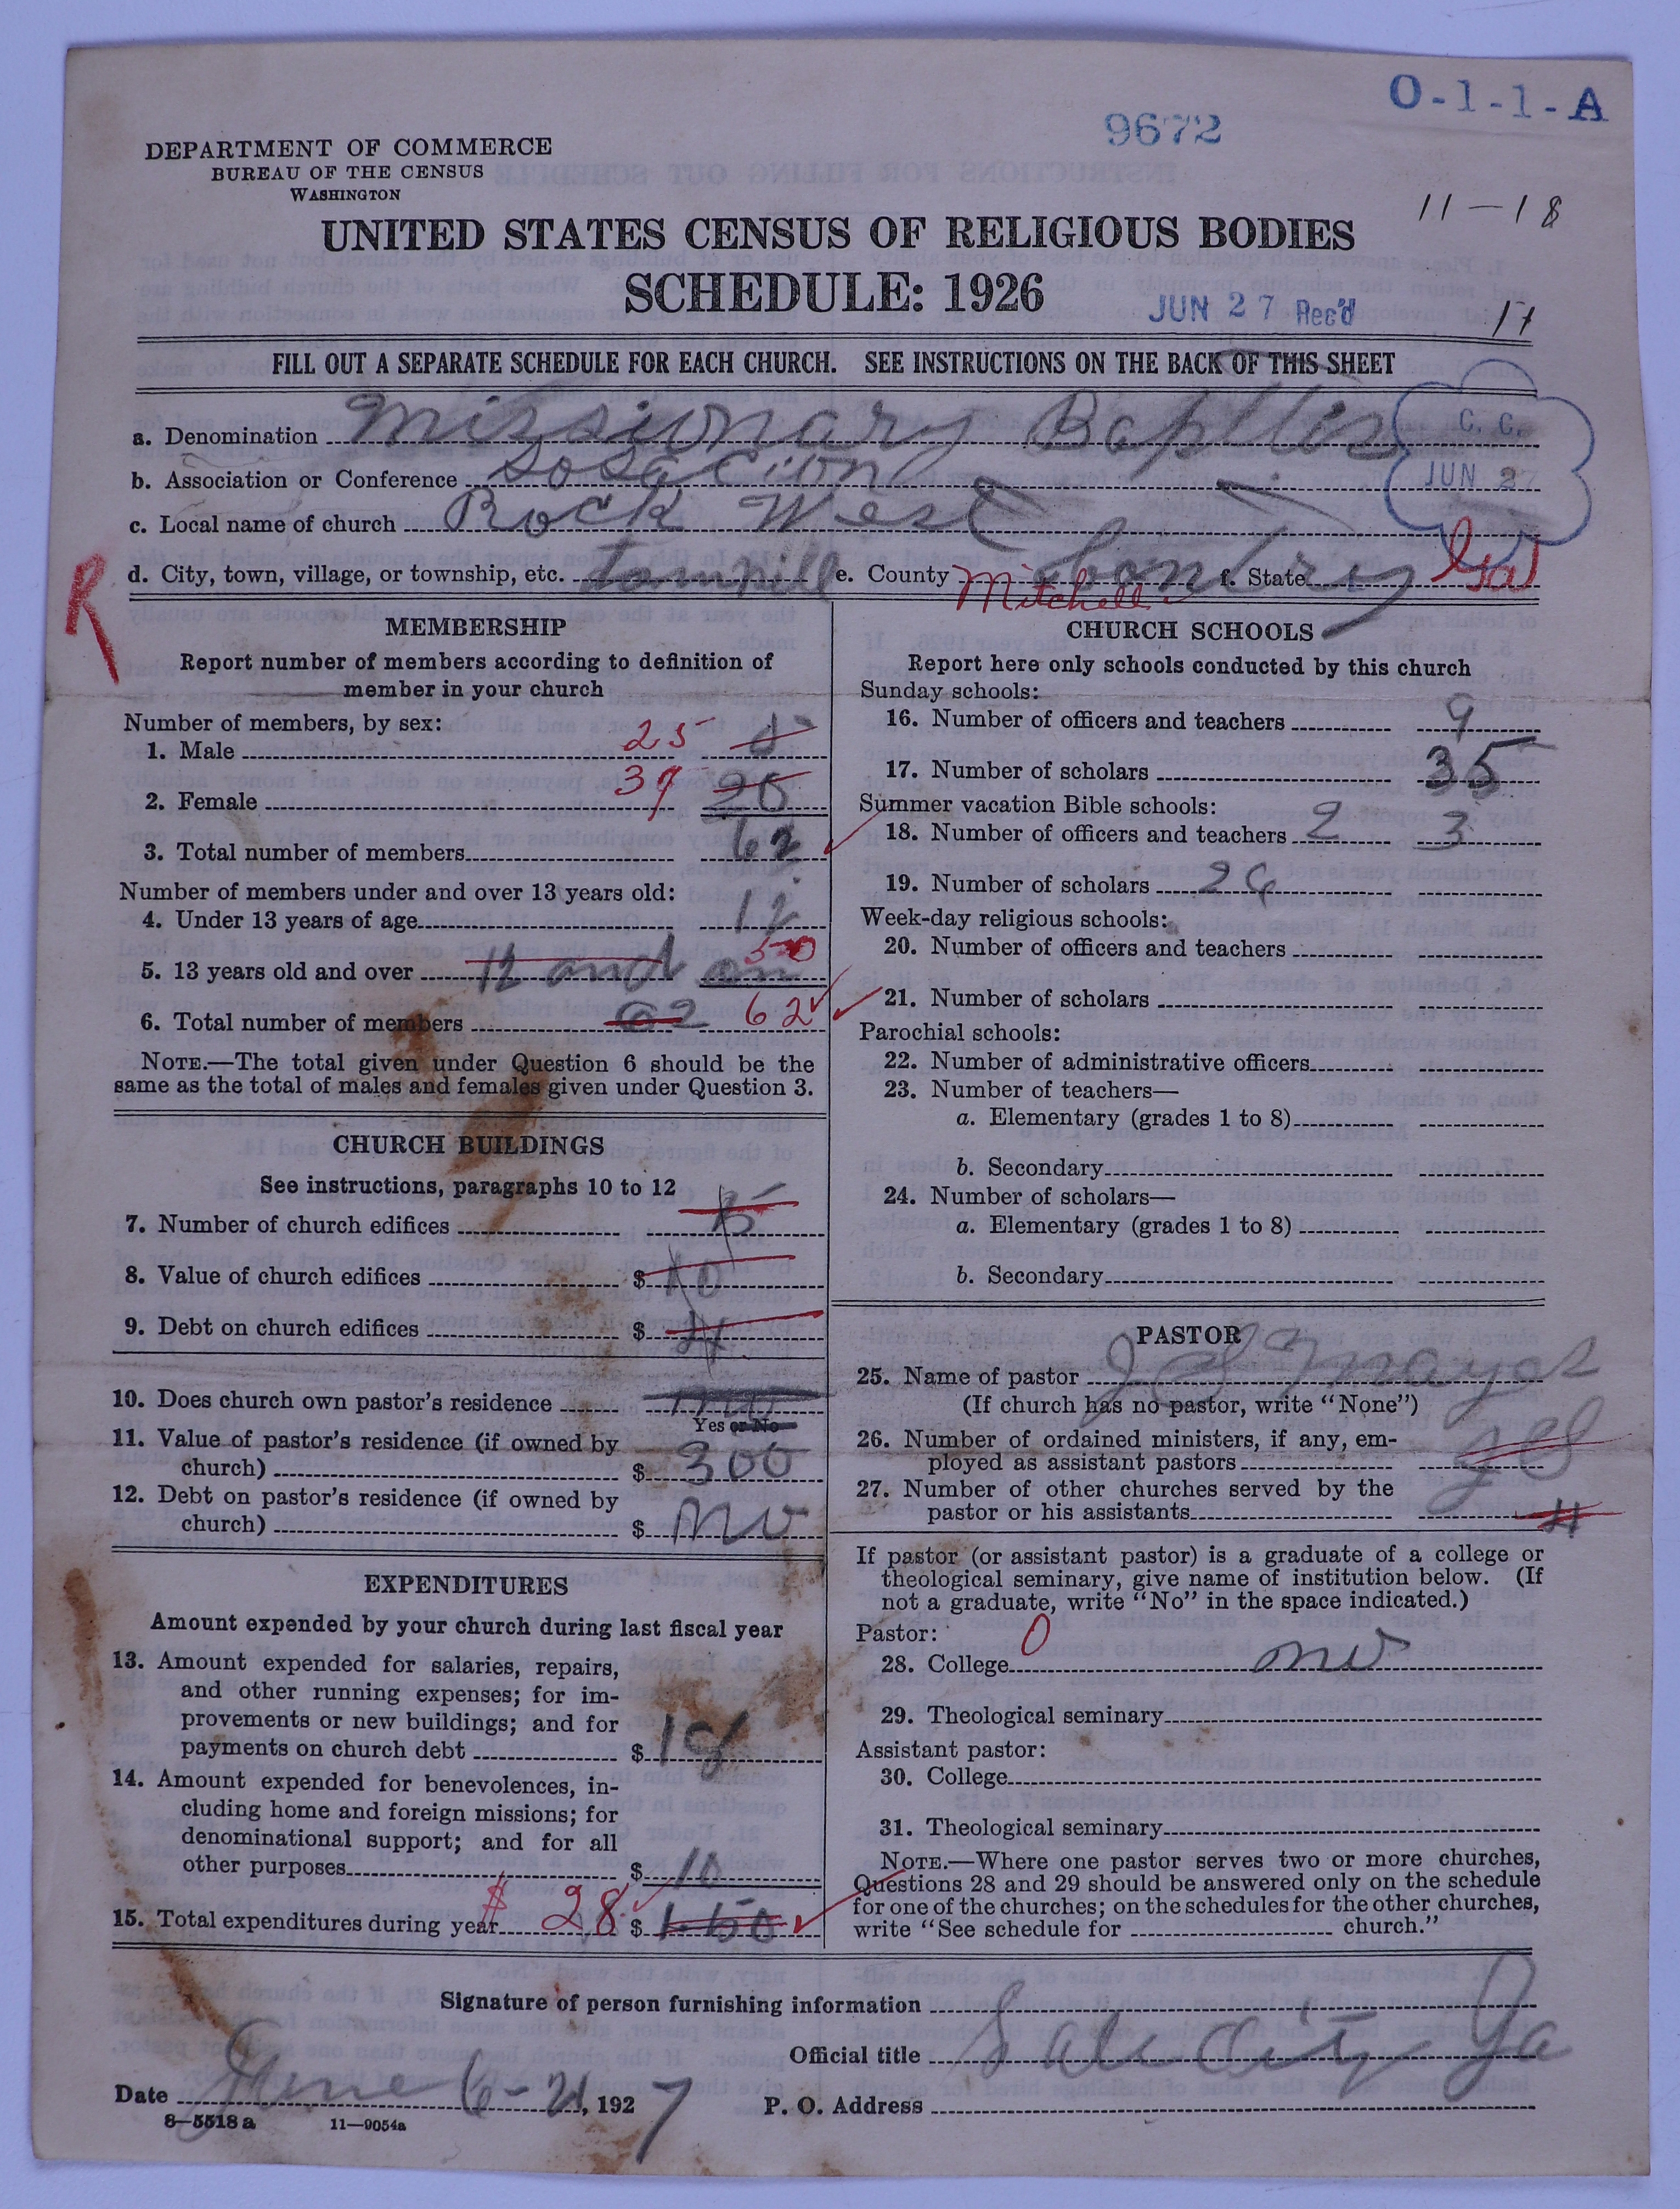 O-1-1-A
9672
DEPARTMENT OF COMMERCE
BUREAU OF THE CENSUS
WASHINGTON
11-18
UNITED STATES CENSUS OF RELIGIOUS BODIES
SCHEDULE: 1926
JUN 27 Rec'd
FILL OUT A SEPARATE SCHEDULE FOR EACH CHURCH. SEE INSTRUCTIONS ON THE BACK OF THIS SHEET
C. C.
JUN 27
a. Denomination Missionary Baptis
b. Association or Conference Sosacion
c. Local name of church Rock West
d. City, town, village, or township, etc. e. County Mitchell f. State Ga
R
MEMBERSHIP
Report number of members according to definition of
member in your church
Number of members, by sex:
1. Male 25
2. Female 37 20
3. Total number of members 62
Number of members under and over 13 years old:
4. Under 13 years of age 12
5. 13 years old and over 12 and on 50
6. Total number of members 62 62
NOTE.—The total given under Question 6 should be the
same as the total of males and females given under Question 3.
CHURCH BUILDINGS
See instructions, paragraphs 10 to 12
7. Number of church edifices
8. Value of church edifices $ 10
9. Debt on church edifices $ 4
10. Does church own pastor's residence
Yes or No
11. Value of pastor's residence (if owned by
church) $ 300
12. Debt on pastor's residence (if owned by
church) $ no
EXPENDITURES
Amount expended by your church during last fiscal year
13. Amount expended for salaries, repairs,
and other running expenses; for im-
provements or new buildings; and for
payments on church debt $ 18
14. Amount expended for benevolences, in-
cluding home and foreign missions; for
denominational support; and for all
other purposes $ 10
15. Total expenditures during year $28 $
CHURCH SCHOOLS
Report here only schools conducted by this church
Sunday schools:
16. Number of officers and teachers 9
17. Number of scholars 35
Summer vacation Bible schools:
18. Number of officers and teachers 2 3
19. Number of scholars
Week-day religious schools:
20. Number of officers and teachers
21. Number of scholars
Parochial schools:
22. Number of administrative officers
23. Number of teachers—
a. Elementary (grades 1 to 8)
b. Secondary
24. Number of scholars—
a. Elementary (grades 1 to 8)
b. Secondary
PASTOR
25. Name of pastor Mayos
(If church has no pastor, write "None")
26. Number of ordained ministers, if any, em-
ployed as assistant pastors yes
27. Number of other churches served by the
pastor or his assistants 4
If pastor (or assistant pastor) is a graduate of a college or
theological seminary, give name of institution below. (If
not a graduate, write "No" in the space indicated.)
Pastor: 0
28. College no
29. Theological seminary
Assistant pastor:
30. College
31. Theological seminary
NOTE.—Where one pastor serves two or more churches,
Questions 28 and 29 should be answered only on the schedule
for one of the churches; on the schedules for the other churches,
write "See schedule for church."
Signature of person furnishing information
Official title Sale City Ga
Date June 6-21, 1927 P. O. Address
8-5518 a 11-9054a